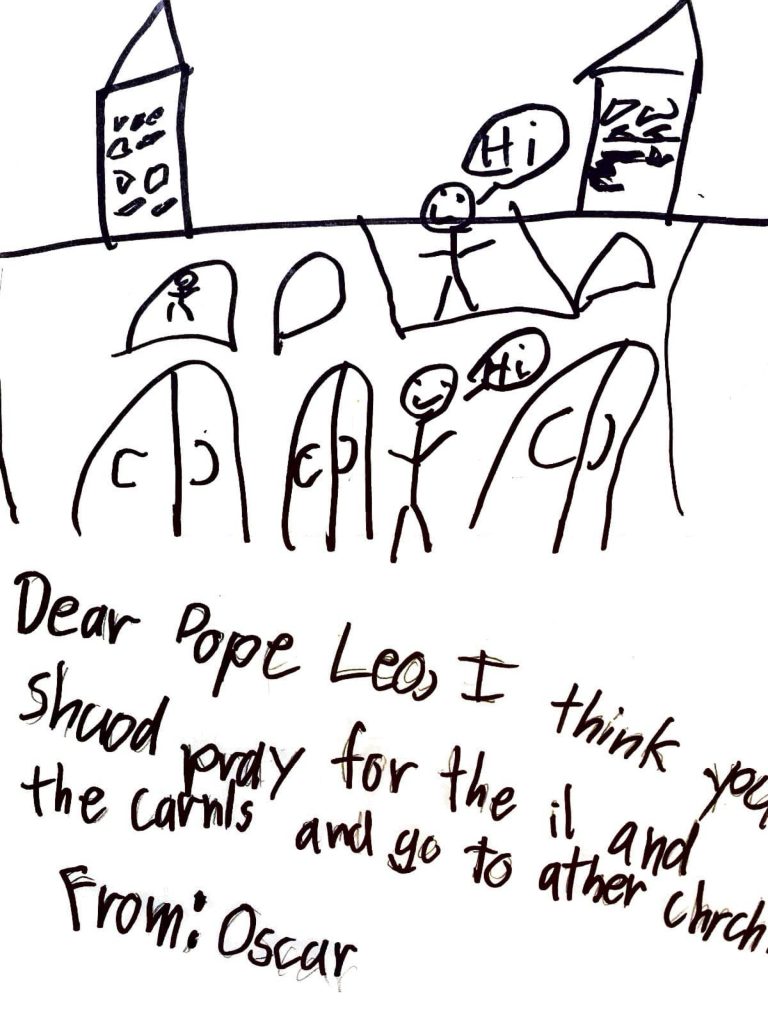 Hi
Hi
Dear Pope Leo, I think you
shuod pray for the il and
the carnls and go to ather chrch.
From: Oscar